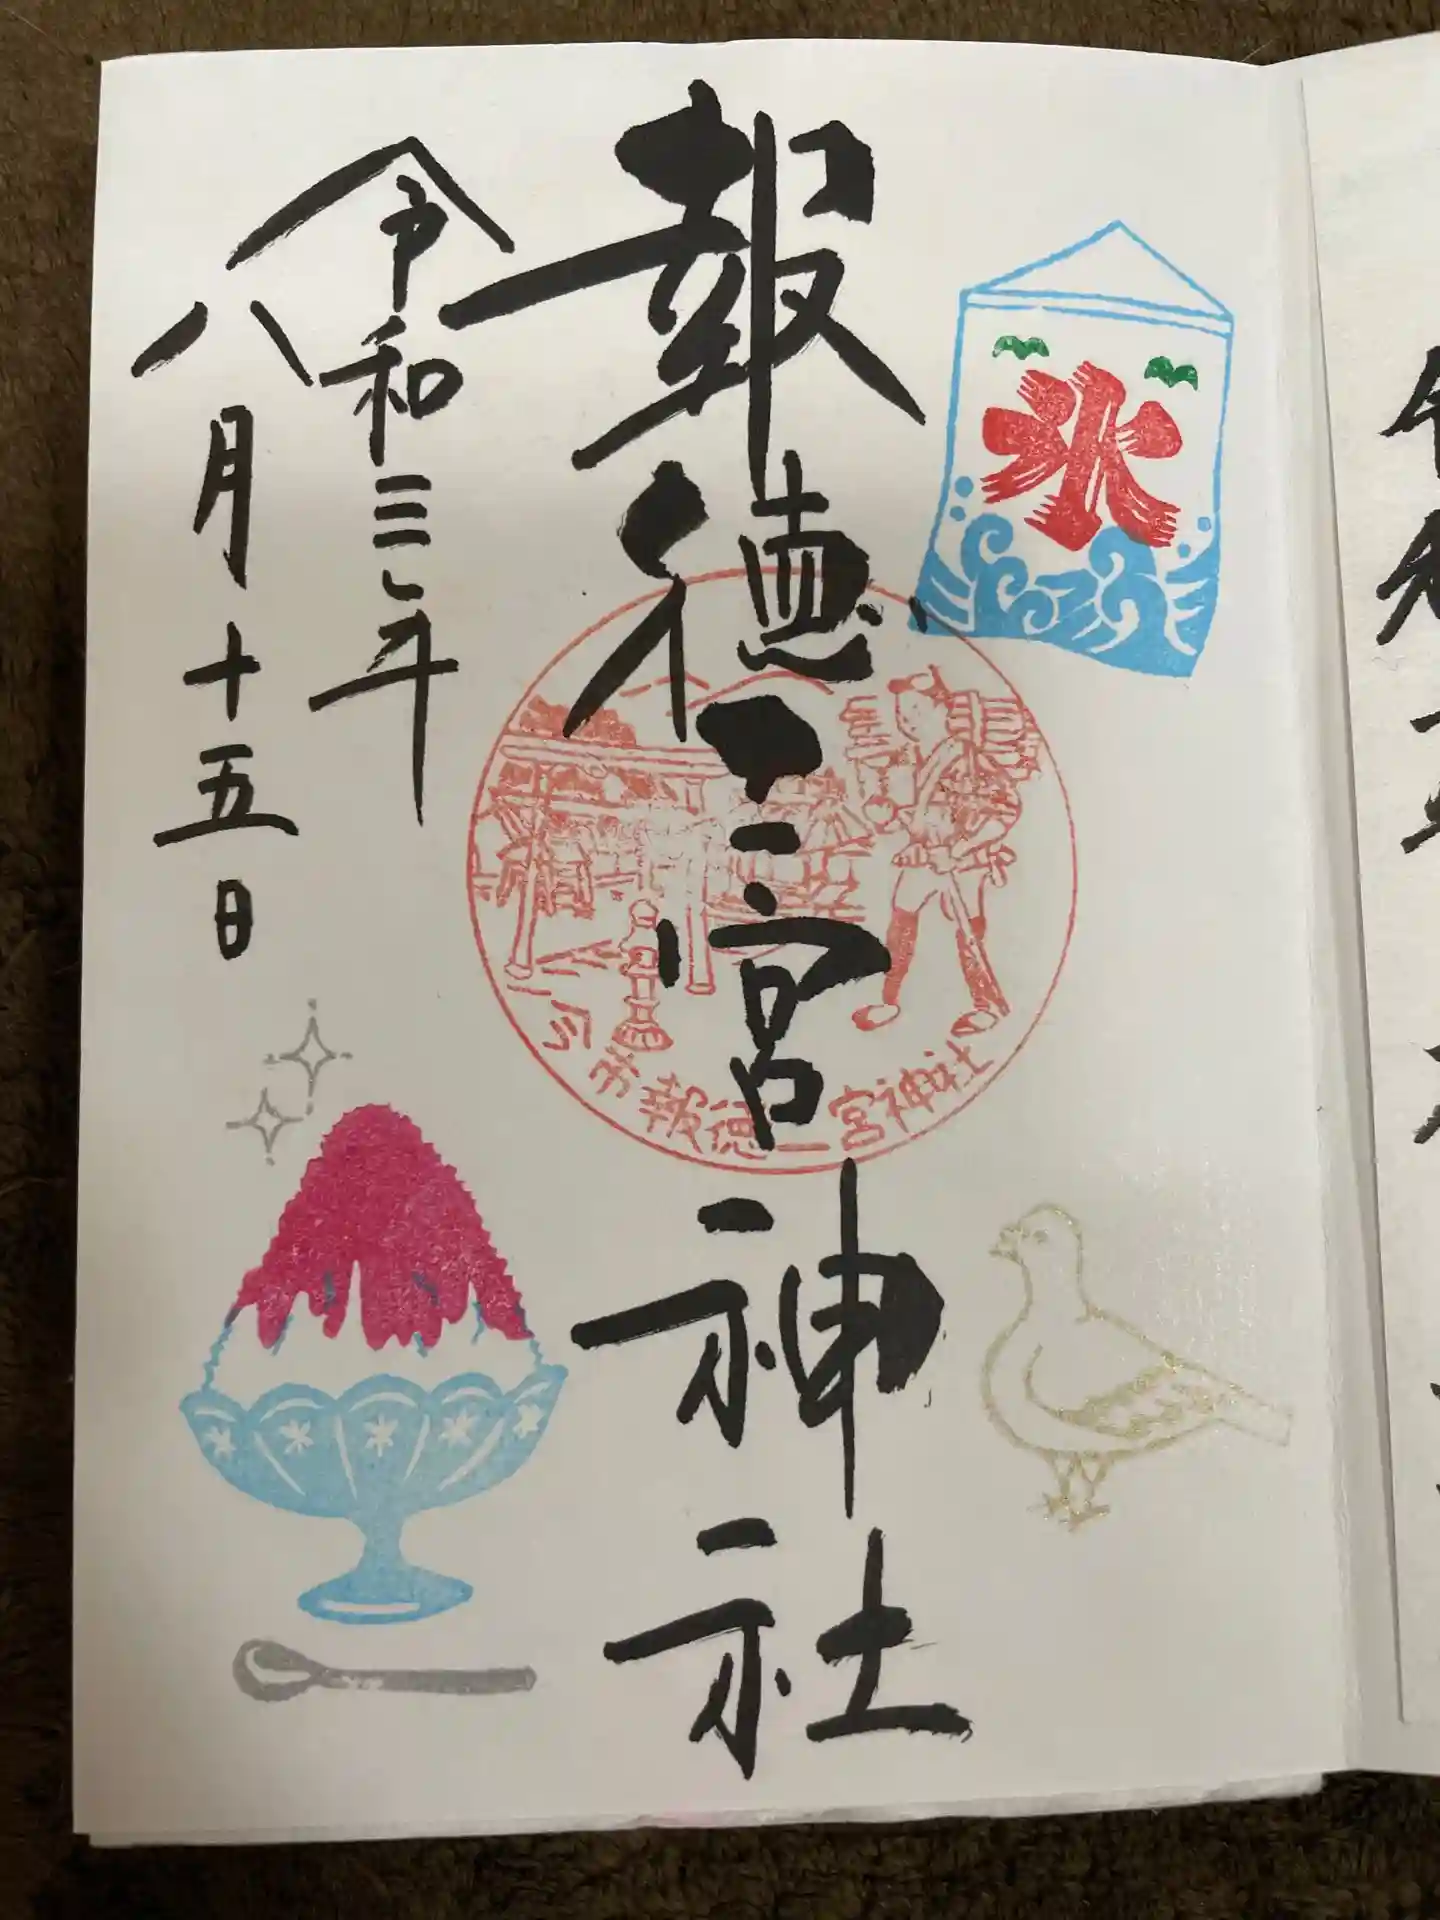 氷
報徳二宮神社
令和三年
八月十五日
今市報徳二宮神社